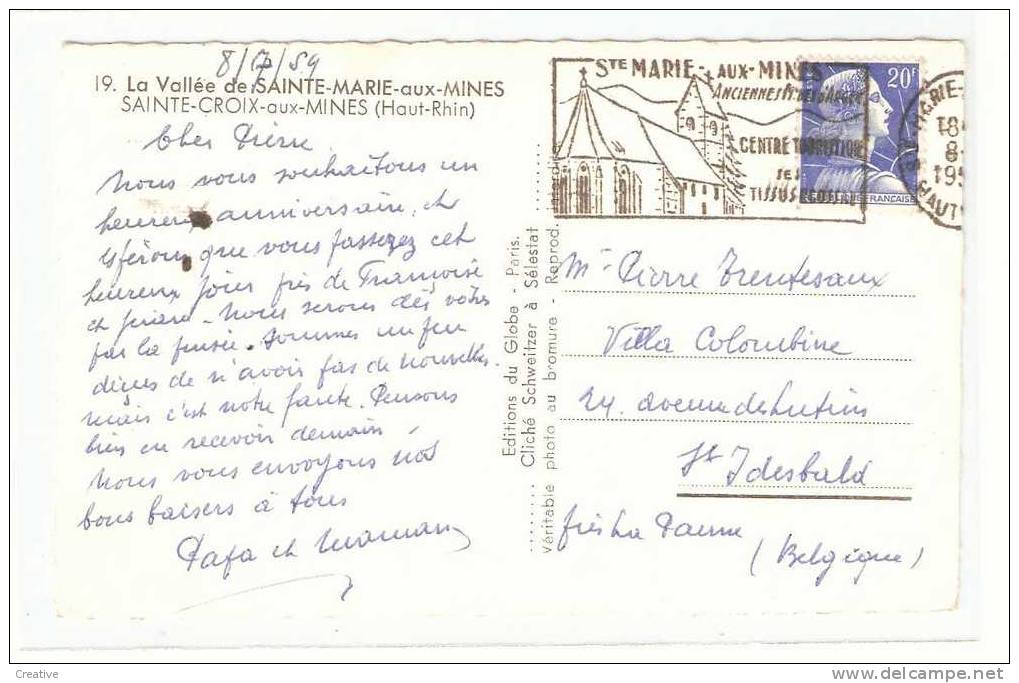 8/7/59
19. La Vallée de SAINTE-MARIE-aux-MINES
SAINTE-CROIX-aux-MINES (Haut-Rhin)
Cher Pierre
Nous vous souhaitons un
heureux anniversaire, et
espérons que vous passerez cet
heureux jour près de Françoise
et . Nous serons des vôtres
par la pensée. Sommes un peu
déçus de n'avoir pas de nouvelles
mais c'est notre faute. Pensons
bien en recevoir demain.
Nous vous envoyons nos
bons baisers à tous
Papa et Maman
Editions du Globe - Paris.
Cliché Schweitzer à Sélestat
véritable photo au bromure - Reprod.
STE MARIE-AUX-MINES
ANCIENNES MINES D'ARGENT
CENTRE TOURISTIQUE
SES
TISSUS
20F
FRANÇAISE
18
8
195
HAUT
Mr Pierre Trentesaux
Villa Colombine
24. avenue des Lutins
St Idesbald
près La Panne
(Belgique)
Creative
www.delcampe.net